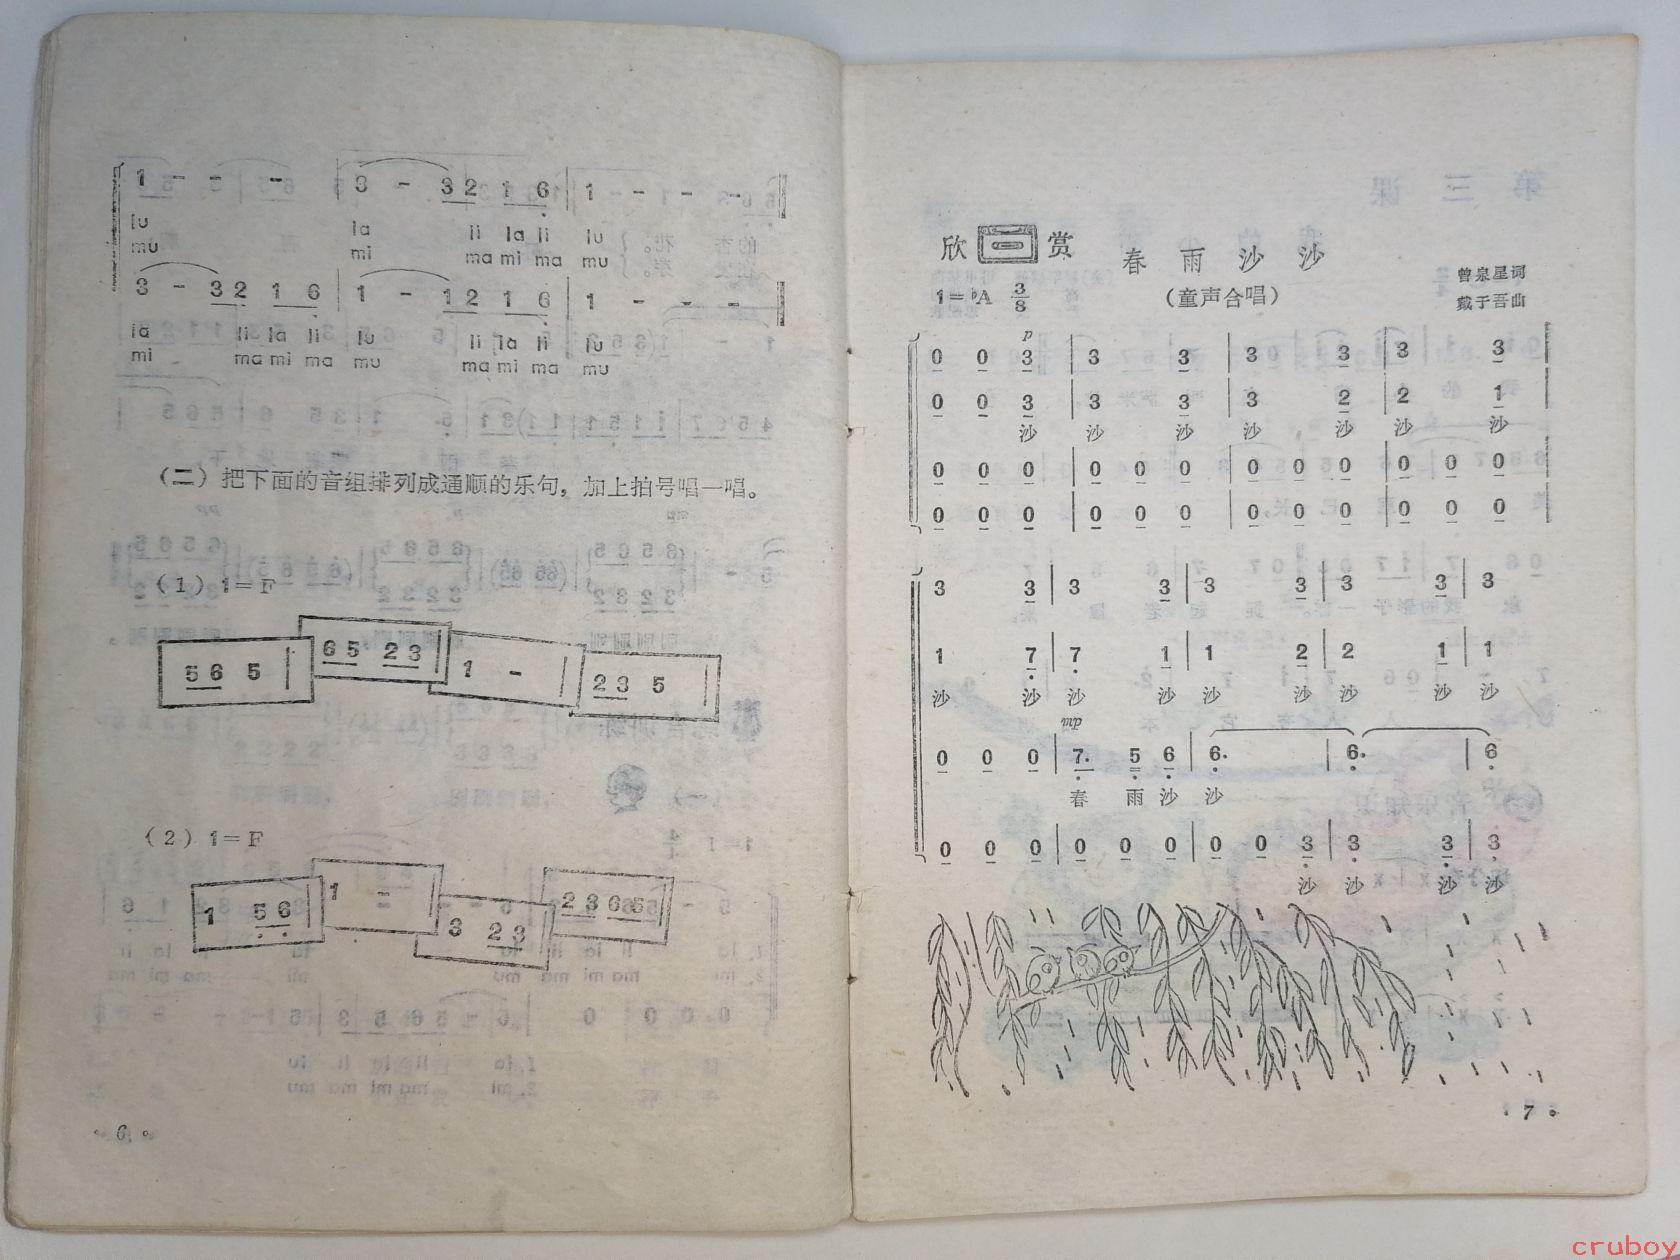 1 - - - | 3 - 3 2 1 6 | 1 - - -
lu la li la li lu
mu mi ma mi ma mu
3 - 3 2 1 6 | 1 - 1 2 1 6 | 1 - - -
la li la li lu li la li lu
mi ma mi ma mu ma mi ma mu
(二)把下面的音组排列成通顺的乐句,加上拍号唱一唱。
(1) 1=F
5 6 5 | 6 5 2 3 | 1 - | 2 3 5
(2) 1=F
1 5 6 | 1 - | 3 2 3 | 2 3 6 5 |
。6。
欣 二 赏 春雨沙沙
曾泉星词
1=♭A 3/8 (童声合唱)
戴于吾曲
p
0 0 3 | 3 3 | 3 3 | 3 3 |
0 0 3 | 3 3 | 3 2 | 2 1 |
沙 沙 沙 沙 沙 沙 沙
0 0 0 | 0 0 0 | 0 0 0 | 0 0 0 |
0 0 0 | 0 0 0 | 0 0 0 | 0 0 0 |
3 3 | 3 3 | 3 3 | 3 3 | 3
1 7 | 7 1 | 1 2 | 2 1 | 1
沙 沙 沙 沙 沙 沙 沙 沙 沙
mp
0 0 0 | 7. 5 6 | 6. | 6. | 6
春 雨 沙 沙
0 0 0 | 0 0 0 | 0 0 3 | 3 3 | 3
沙 沙 沙 沙
7。
cruboy